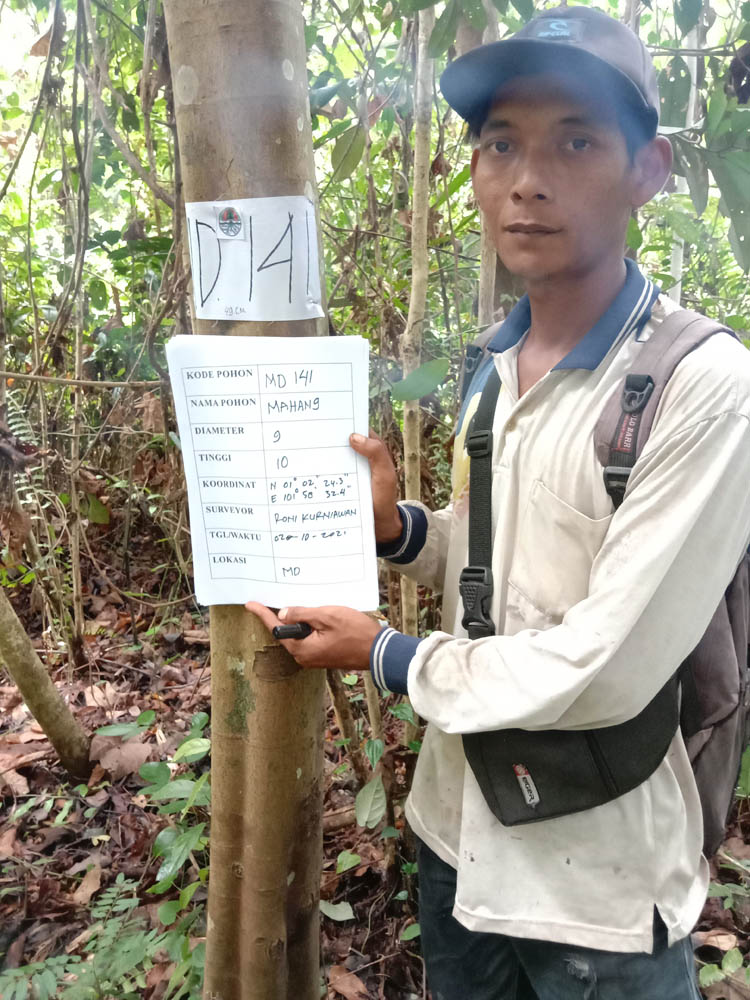 RIP CURL
D. 141
49 CM
KODE POHON MD 141
NAMA POHON MAHANG
DIAMETER 9
TINGGI 10
KOORDINAT N 01° 02' 24.3"
E 101° 58' 32.4"
SURVEYOR RONI KURNIAWAN
TGL/WAKTU 020-10-2021
LOKASI MD
POLO BARR
EIGER